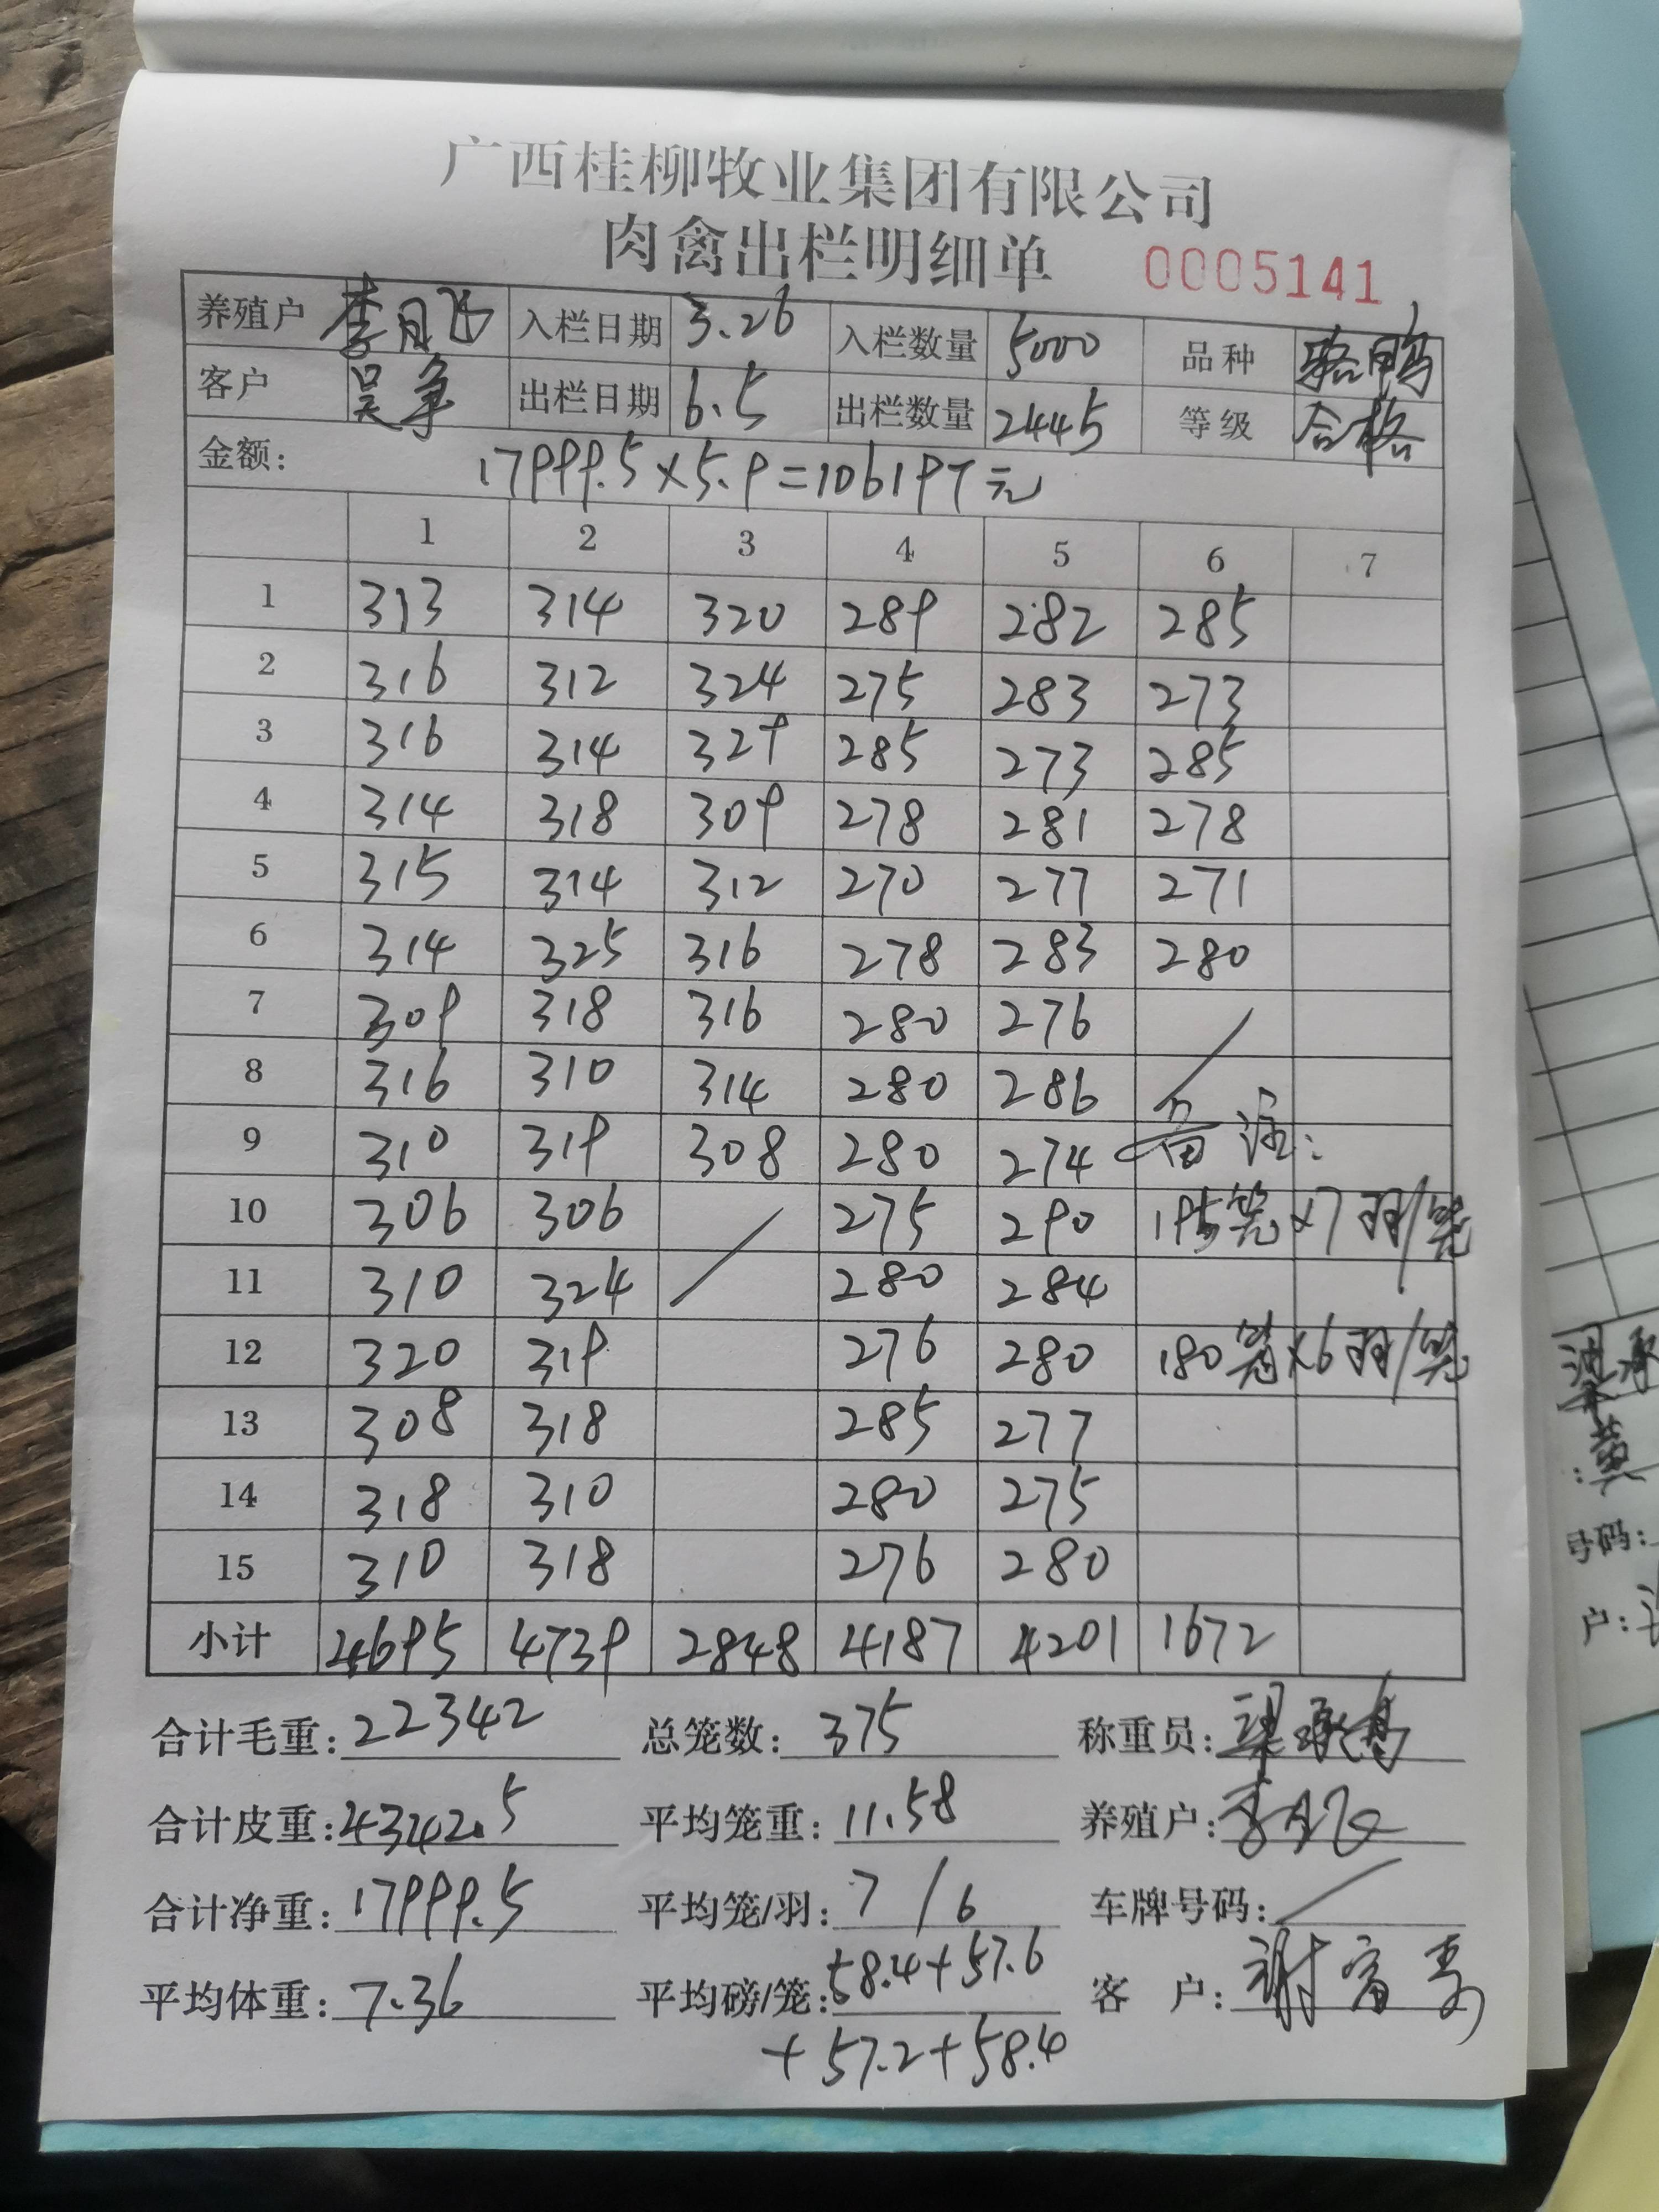 广西桂柳牧业集团有限公司
肉禽出栏明细单 0005141
养殖户 李月飞 入栏日期 3.26 入栏数量 5000 品种
客户 吴争 出栏日期 6.5 出栏数量 2445 等级 合格
金额: 17999.5×5.9=106197元
1 2 3 4 5 6 7
1 313 314 320 289 282 285
2 316 312 324 275 283 273
3 316 314 329 285 273 285
4 314 318 309 278 281 278
5 315 314 312 270 277 271
6 314 325 316 278 283 280
7 309 318 316 280 276 /
8 316 310 314 280 286
9 310 319 308 280 274 备注:
10 306 306 / 275 290 195笼×7羽/笼
11 310 324 280 284
12 320 319 276 280 180笼×6羽/笼
13 308 318 285 277
14 318 310 280 275
15 310 318 276 280
小计 4695 4739 2848 4187 4201 1672
合计毛重: 22342 总笼数: 375 称重员:
合计皮重: 4342.5 平均笼重: 11.58 养殖户: 李月飞
合计净重: 17999.5 平均笼/羽: 7/6 车牌号码: /
平均体重: 7.36 平均磅/笼: 58.4+57.6 客 户: 谢富
+57.2+58.4
号码:
户: